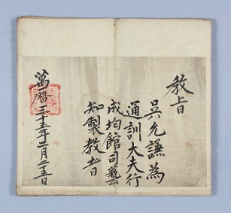 教旨
吳允謙為
通訓大夫行
成均館司藝
知製教者
萬曆三十五年二月二十五日